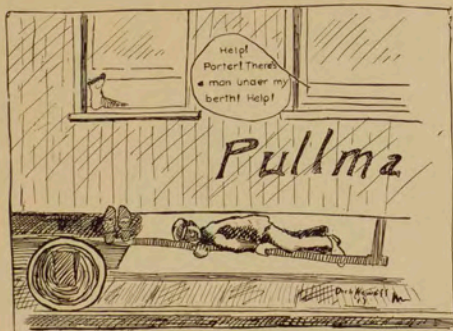 Help!
Porter! There's
a man under my
berth! Help!
Pullma